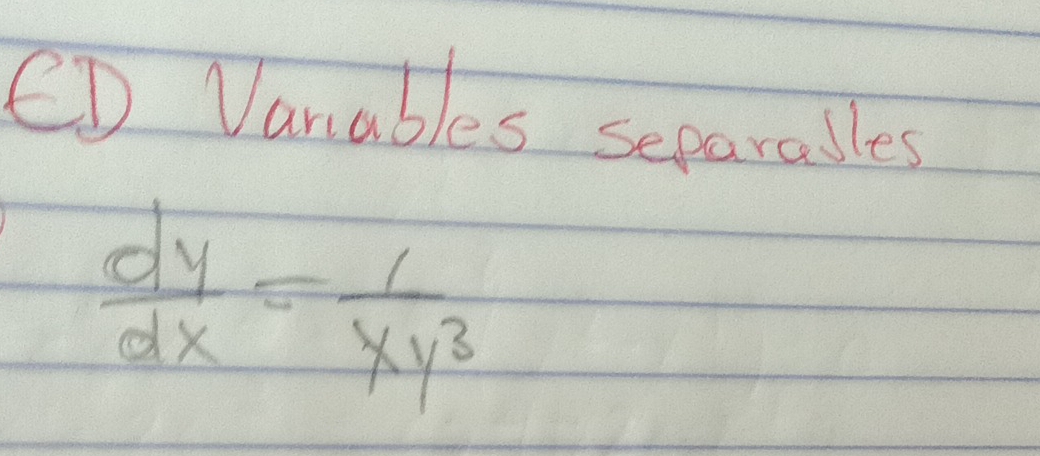 ED Variables separables
dy/dx = 1/xy³